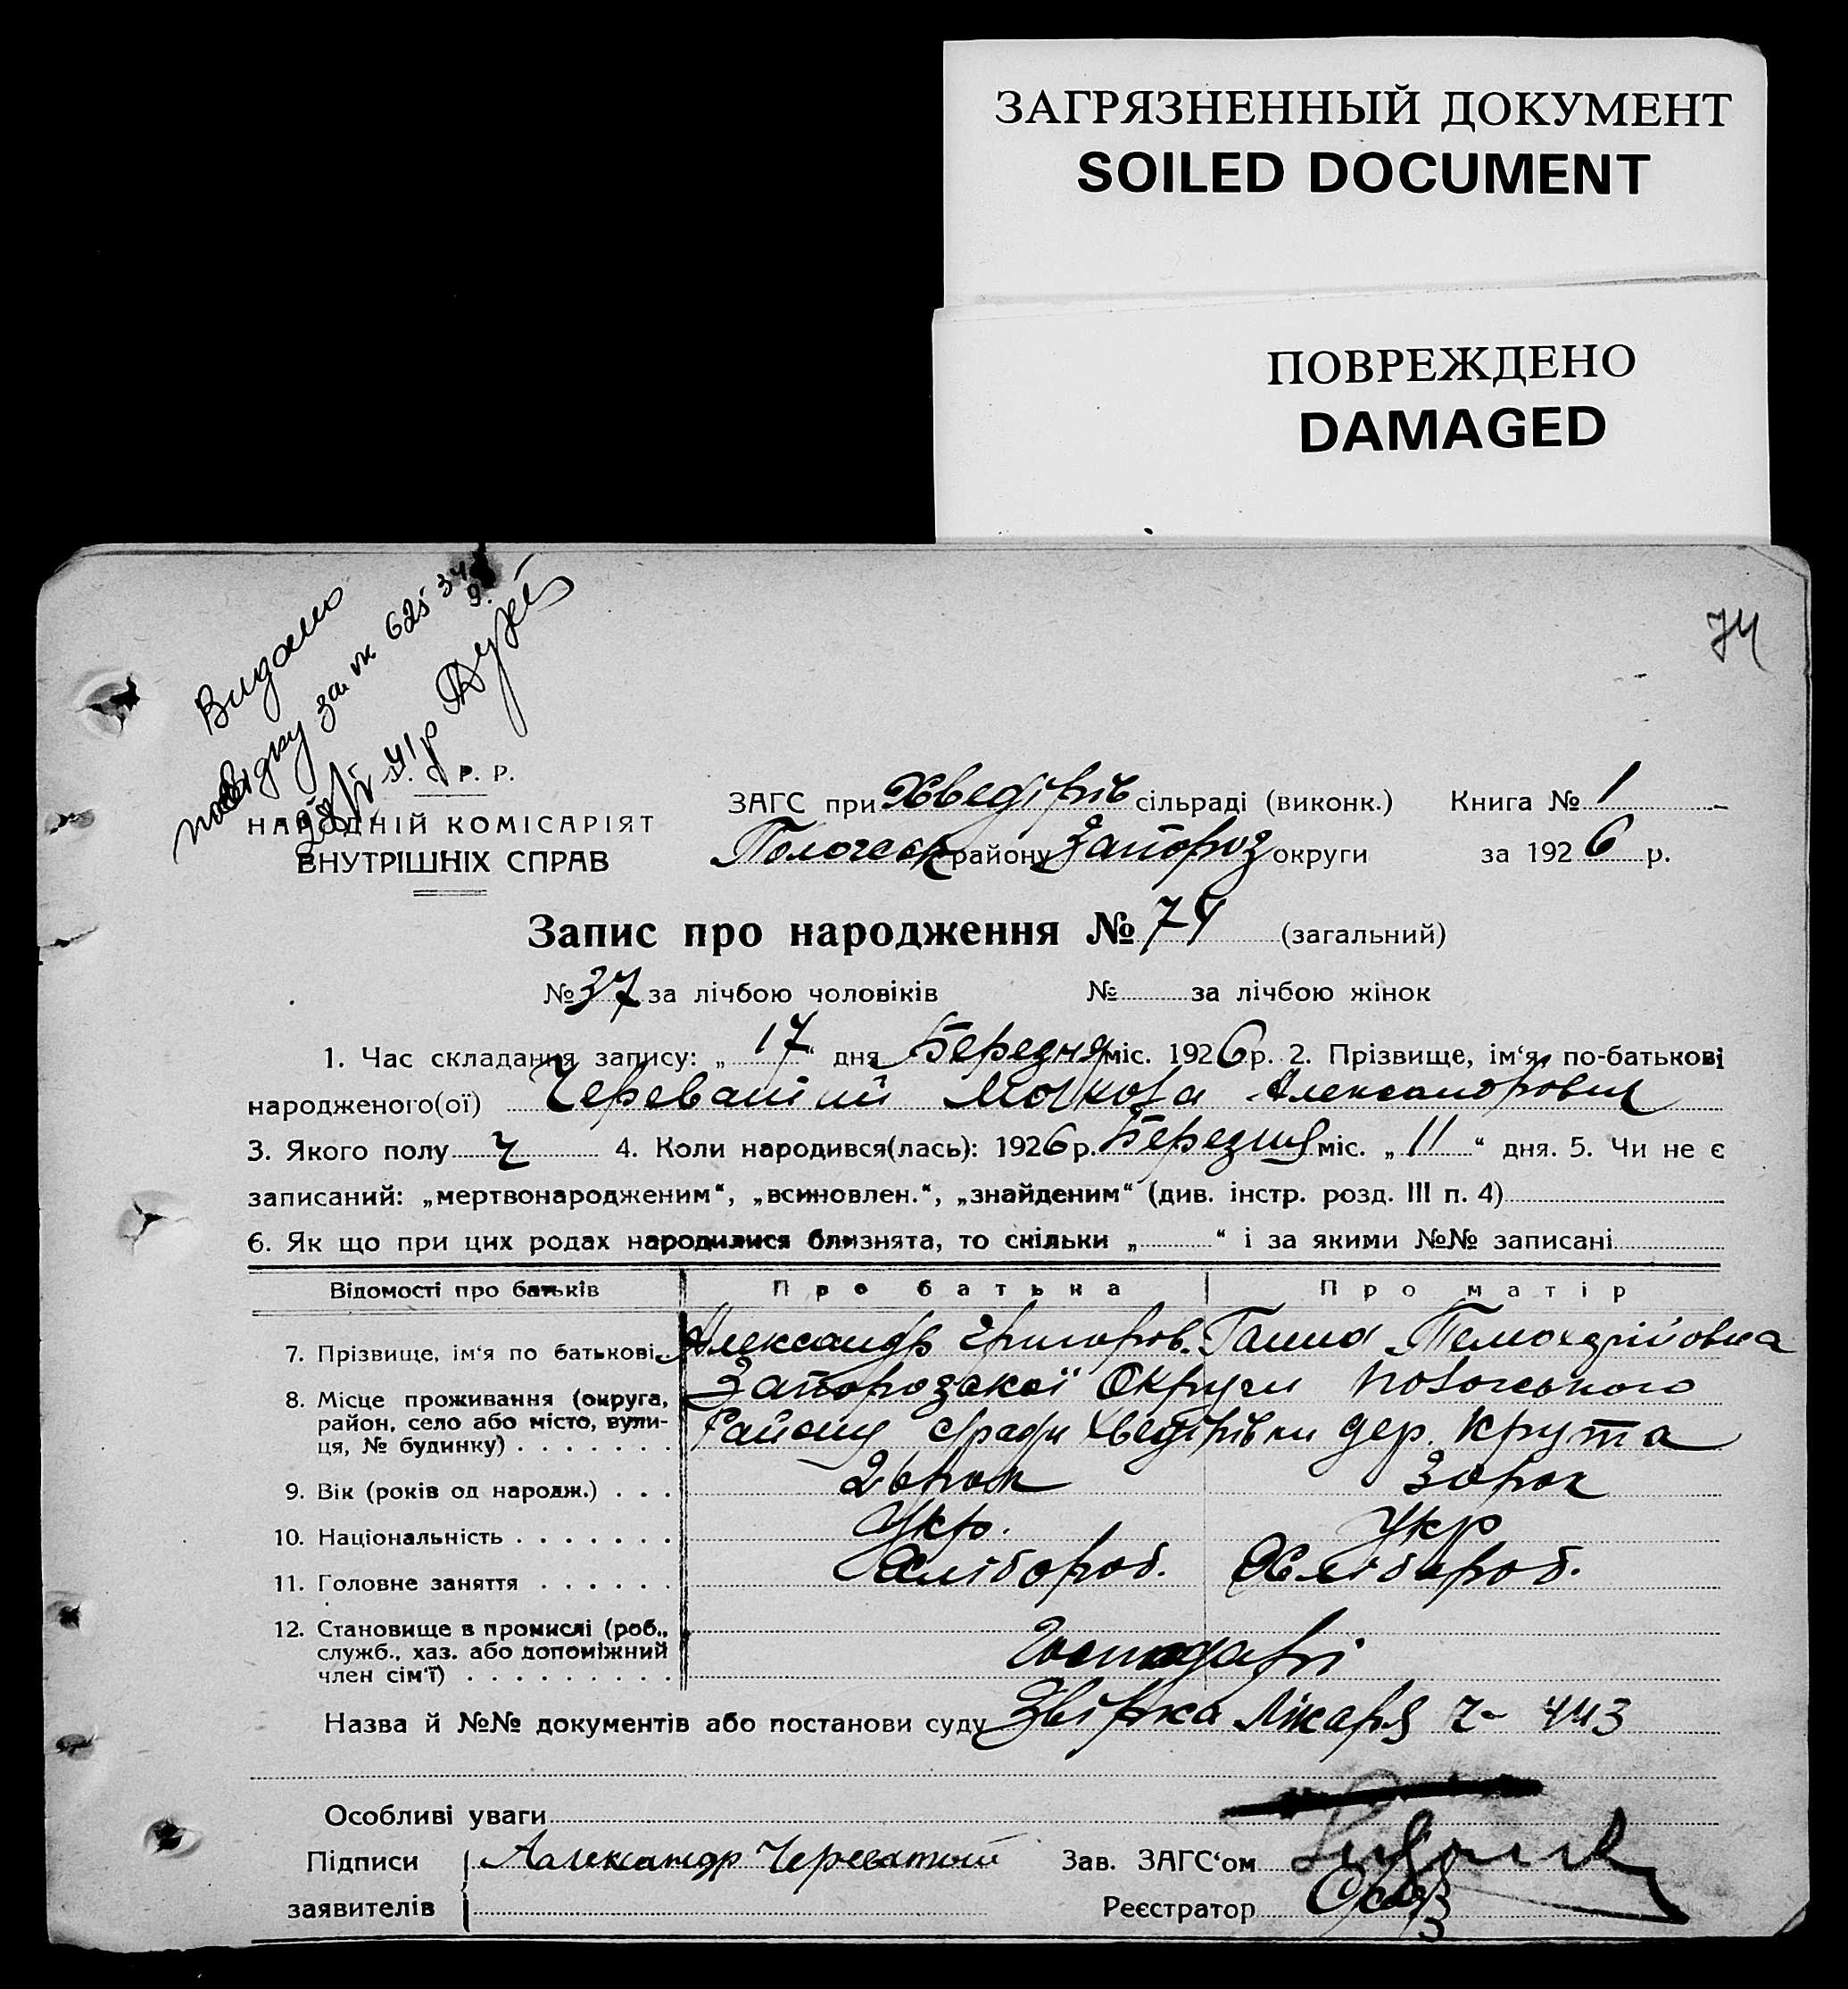 ЗАГРЯЗНЕННЫЙ ДОКУМЕНТ
SOILED DOCUMENT
ПОВРЕЖДЕНО
DAMAGED
74
Видано
посвідку за № 625 34
41р
Р. Р.
НАРОДНІЙ КОМІСАРІЯТ
ВНУТРІШНІХ СПРАВ
ЗАГС при Хведірів сільраді (виконк.) Книга № 1
Пологськ району Запороз округи за 1926 р.
Запис про народження № 74 (загальний)
№ 37 за лічбою чоловіків № за лічбою жінок
1. Час складання запису: „ 17 “ дня Березня міс. 1926 р. 2. Прізвище, ім‘я, по-батькові
народженого(ої) Череватий Александрович
3. Якого полу ч 4. Коли народився(лась): 1926 р. Березня міс. „ 11 “ дня. 5. Чи не є
записаний: „мертвонародженим“, „всиновлен.“, „знайденим“ (див. інстр. розд. III п. 4)
6. Як що при цих родах народилися близнята, то скільки „ “ і за якими №№ записані
Відомості про батьків Про батька Про матір
7. Прізвище, ім‘я по батькові Александр Григоров. Ганна
8. Місце проживання (округа, Запорозської Округи Пологського
район, село або місто, вули- Району с/ради Хведірівки дер. Крута
ця, № будинку)
9. Вік (років од народж.) 26 рок 30 рок
10. Національність Укр. Укр
11. Головне заняття Хлібороб. Хлібороб.
12. Становище в промислі (роб.,
служб., хаз. або допоміжний Господарі
член сім‘ї)
Назва й №№ документів або постанови суду Звірка Лікаря ч- 443
Особливі уваги
Підписи Александр Череватый Зав. ЗАГС‘ом
заявителів Реєстратор